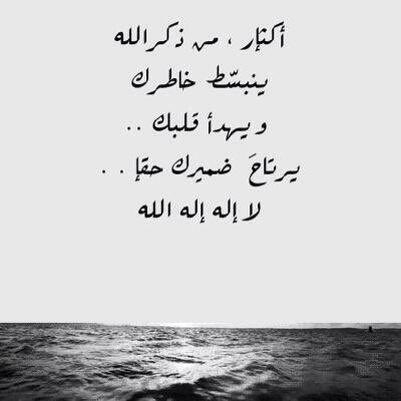 أكثإر ، من ذكر الله
ينبسّط خاطرك
ويهدأ قلبك ..
يرتاحَ ضميرك حقإ ..
لا إله إله الله